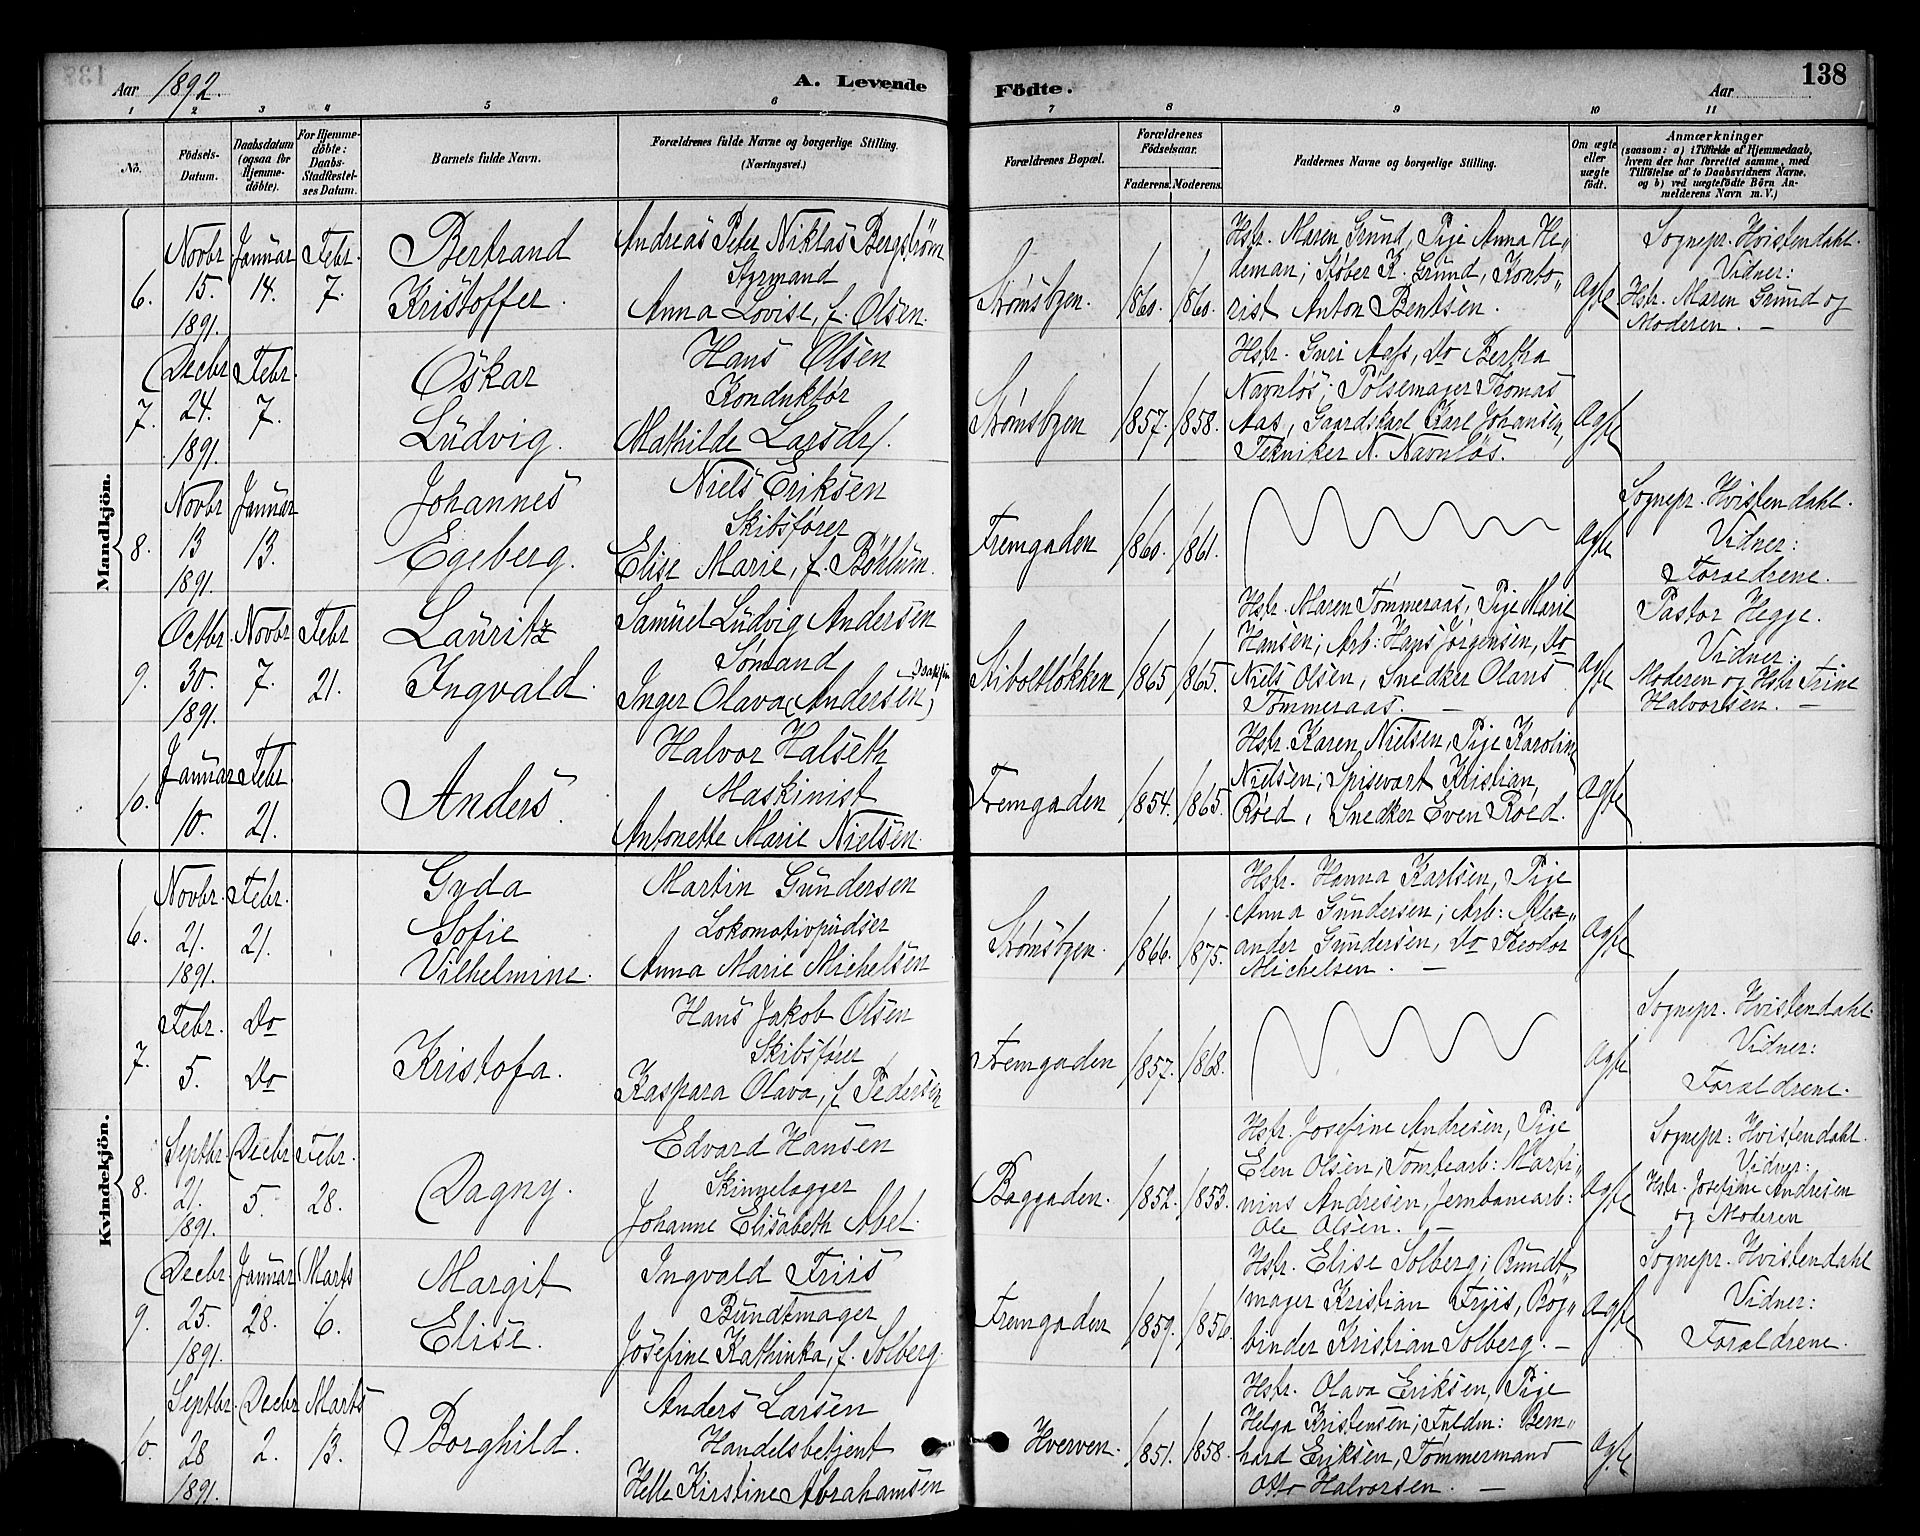 138
Aar 1892.
A. Levende
Födte.
Aar
138
1 2 3 4 5 6 7 8 9 10 11
No.
Födsels-
Datum.
Daabsdatum
(ogsaa for
Hjemme-
döbte).
For Hjemme-
döbte:
Daabs-
Stadfæstel-
ses Datum.
Barnets fulde Navn.
Forældrenes fulde Navne og borgerlige Stilling.
(Næringsvei.)
Forældrenes Bopæl.
Forældrenes
Födselsaar.
Faderens.
Moderens.
Faddernes Navne og borgerlige Stilling.
Om ægte
eller
uægte
födt.
Anmærkninger
(saasom: a) i Tilfælde af Hjemmedaab,
hvem der har forrettet samme, med
Tilföielse af to Daabsvidners Navne,
og b) ved uægtefödte Börn An-
melderens Navn m. V.)
Mandkjön.
6.
Novbr
15.
1891.
Januar
14.
Febr.
7.
Bertrand
Kristoffer.
Andreas Peter Niklas Bergström
Styrmand
Anna Lovise, f. Olsen.
Strømsbyen.
1860.
1860.
Hstr. Maren Grund, Pige Anna He„
deman; Støber K. Grund, Konto„
rist Anton Bentsen.
Ægte
Sognepr. Hvistendahl.
Vidner:
Hstr. Maren Grund og
Moderen. —
7.
Decbr
24.
1891.
Febr.
7.
Oskar
Ludvig.
Hans Olsen
Konduktör
Mathilde Larsdr.
Strømsbyen
1857.
1858.
Hstr. Guri Aas, Do Bertha
Navnløs; Pølsemager Thomas
Aas, Gaardskarl Karl Johansen,
Tekniker N. Navnløs.
Ægte
8.
Novbr
13
1891.
Januar
13.
Johannes
Egeberg.
Niels Eriksen
Skibsfører
Elise Marie, f. Böhlum.
Fremgaden
1860.
1861.
Ægte
Sognepr. Hvistendahl.
Vidner:
Forældrene.
9.
Octbr
30.
1891.
Novbr
7.
Febr
21.
Lauritz
Ingvald.
Samuel Ludvig Andersen
Sømand
Inger Olava (Andersen)
Stiboltløkken
1865
1865.
Hstr. Maren Tømmeraas, Pige Marie
Hansen; Arb: Hans Jørgensen, Do
Niels Olsen, Snedker Olaus
Tømmeraas. —
Ægte
Pastor Hegge.
Vidner:
Moderen og Hstr Trine
Halvorsen. —
10.
Januar
10.
Febr
21.
Anders.
Halvor Halseth
Maskinist
Antonette Marie Nielsen.
Fremgaden
1854.
1865.
Hstr. Karen Nielsen, Pige Karolin
Nielsen; Spisevært Kristian
Røed, Snedker Even Røed.
Ægte
Kvindekjön.
6.
Novbr.
21.
1891.
Febr.
21.
Gyda
Sofie
Vilhelmine.
Martin Gundersen
Lokomotivpudser
Anna Marie Michelsen
Strømsbyen.
1866.
1875.
Hstr. Hanna Karlsen, Pige
Anna Gundersen; Arb: Alex„
ander Gundersen, Do Theodor
Michelsen. —
Ægte
7.
Febr.
5.
Do
Do
Kristofa.
Hans Jakob Olsen
Skibsfører
Kaspara Olava, f. Pedersen
Fremgaden
1857.
1868.
Ægte
Sognepr. Hvistendahl.
Vidner:
Forældrene.
8.
Septbr.
21.
1891.
Decbr
5.
Febr.
28.
Dagny.
Edvard Hansen
Skinnelægger
Johanne Elisabeth Abel.
Baggaden.
1852.
1853.
Hstr. Josefine Andresen, Pige
Elen Olsen; Tomtearb: Marti„
nius Andresen, Jernbanearb:
Ole Olsen. —
Ægte
Sognepr: Hvistendahl.
Vidner:
Hstr. Josefine Andresen
og Moderen
9.
Decbr.
25.
1891.
Januar
28.
Marts
6.
Margit
Elise.
Ingvald Friis
Bundtmager
Josefine Kathinka, f. Solberg.
Fremgaden
1859.
1856.
Hstr. Elise Solberg; Bundt„
mager Kristian Friis, Bog„
binder Kristian Solberg. —
Ægte
Sognepr. Hvistendahl
Vidner:
Forældrene.
10.
Septbr.
28
1891.
Decbr
2.
Marts
13.
Borghild.
Anders Larsen
Handelsbetjent
Helle Kirstine Abrahamsen
Hverven.
1851.
1858.
Hstr. Olava Eriksen, Pige
Helga Kristensen; Fuldm: Bern„
hard Eriksen, Tømmermand
Otto Halvorsen. —
Ægte